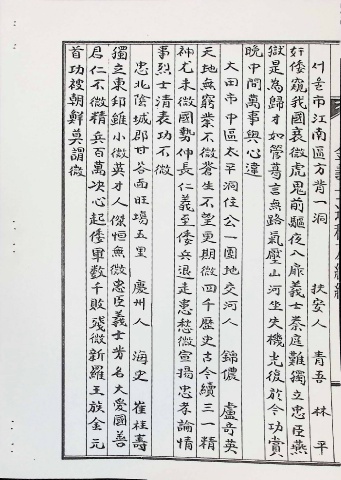 서울市江南區方背一洞 扶安人 青吾 林平
奸倭窺我國衰微虎鬼前驅夜入扉義士秦庭難獨立忠臣燕
獄是為歸才如管葛言無路氣壓山河坐失機光復於今功賞
晚中間萬事與心違
大田市中區太平洞住公一團地交河人 錦儂 盧奇英
天地無窮業不微蒼生不望更期微四千歷史古今續三一精
神尤未微國勢伸長仁義至倭兵退走患愁微宣揚忠孝論情
事烈士清表功不微
忠北陰城郡甘谷面旺場五里 慶州人 海史 崔桂壽
獨立東邦雖小微英才人傑恒無微忠臣義士芳名大愛國善
君仁不微精兵百萬決心起倭軍数千敗殘微新羅王族金元
首功被朝鮮莫謂微